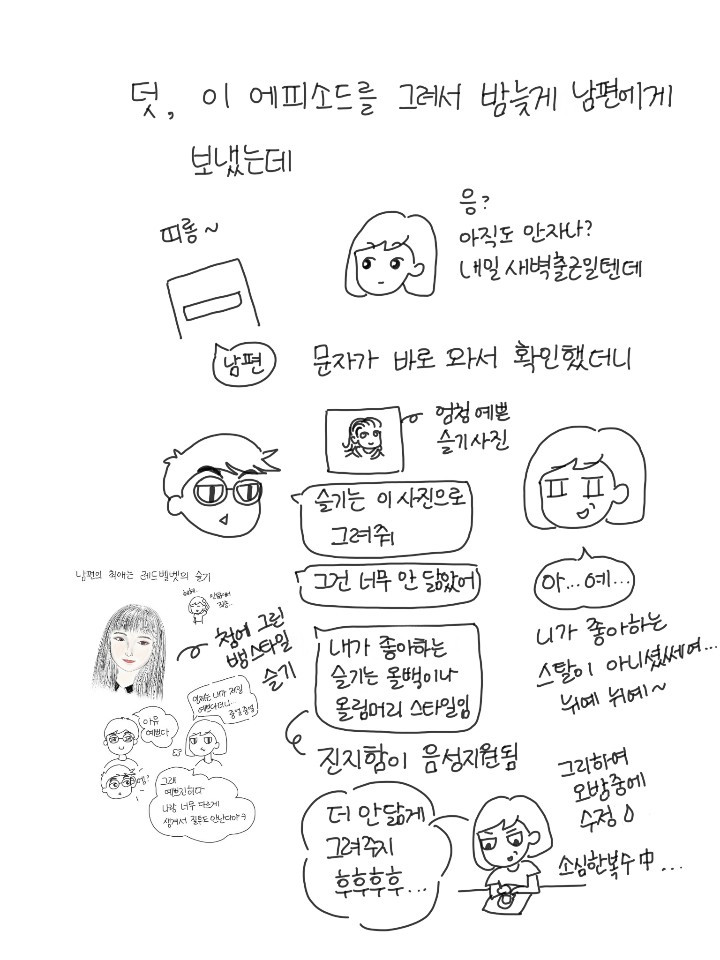 덧, 이 에피소드를 그려서 밤늦게 남편에게
보냈는데
띠롱~
응?
아직도 안자나?
내일 새벽출근일텐데
남편
문자가 바로 와서 확인했더니
엄청 예쁜
슬기사진
슬기는 이 사진으로
그려줘
그건 너무 안 닮았어
내가 좋아하는
슬기는 올백이나
올림머리 스타일임
진지함이 음성지원됨
아...예...
니가 좋아하는
스탈이 아니셨쎄여...
뉘예 뉘예~
남편의 최애는 레드벨벳의 슬기
첨에 그린
뱅스타일
슬기
아유
예쁘다
그래
예쁘긴하다
나랑 너무 다르게
생겨서 질투도 안난다야
그리하여
오방중에
수정
더 안닮게
그려주지
후후후후...
소심한복수中...